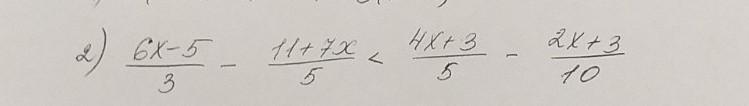 2) \frac{6x-5}{3} - \frac{11+7x}{5} < \frac{4x+3}{5} - \frac{2x+3}{10}